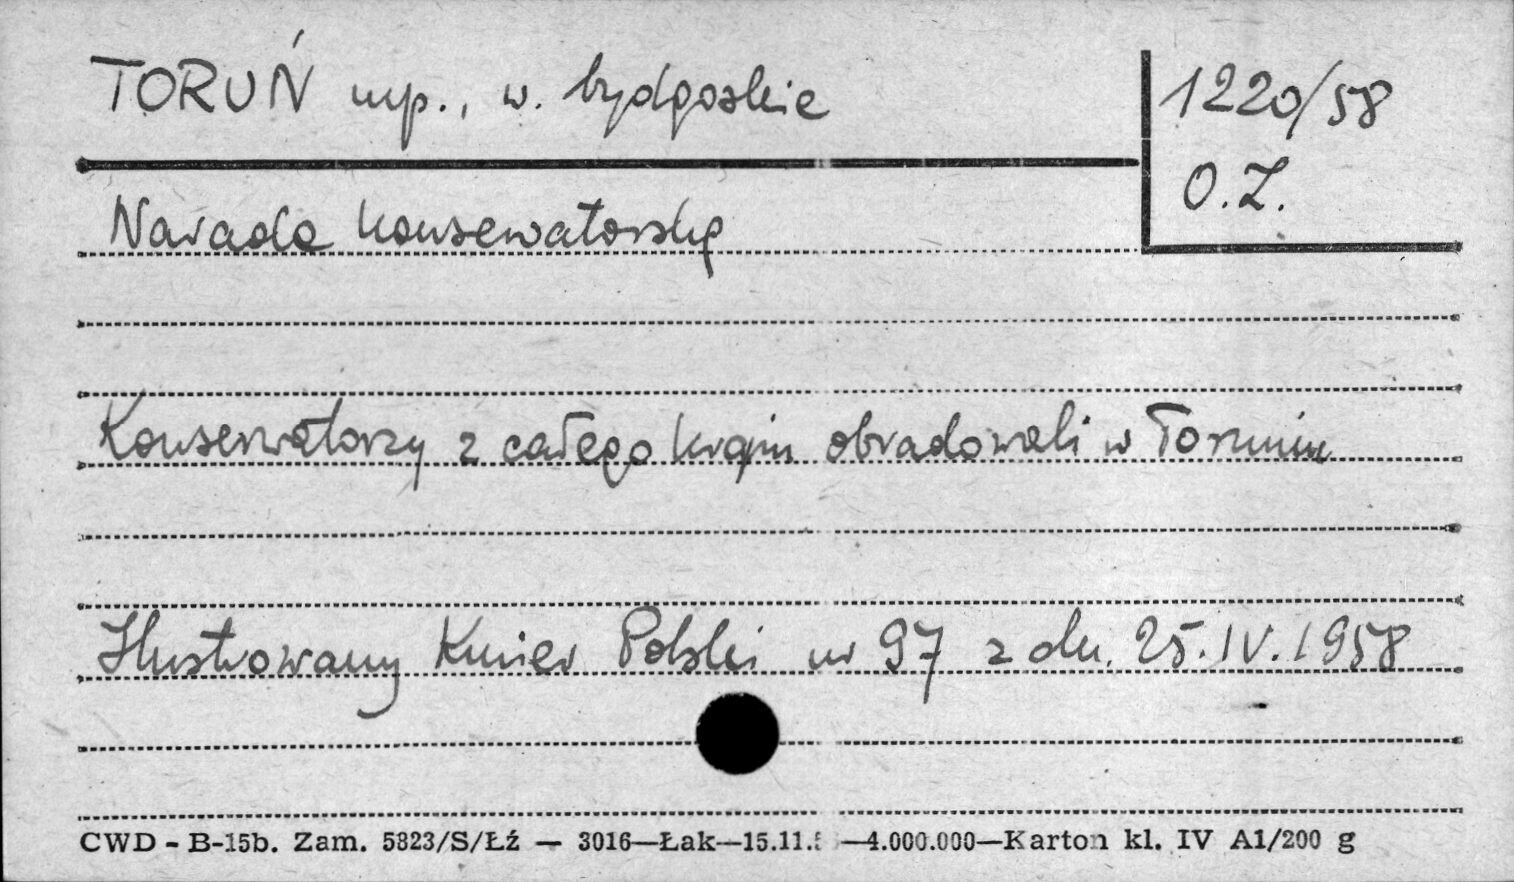 TORUŃ mp., w. bydgoskie
1220/58
O.Z.
Narada konserwatorska
Konserwatorzy z całego kraju obradowali w Toruniu
Ilustrowany Kurier Polski nr 97 z dn. 25.IV.1958
CWD - B-15b. Zam. 5823/S/Łź — 3016—Łak—15.11. —4.000.000—Karton kl. IV A1/200 g